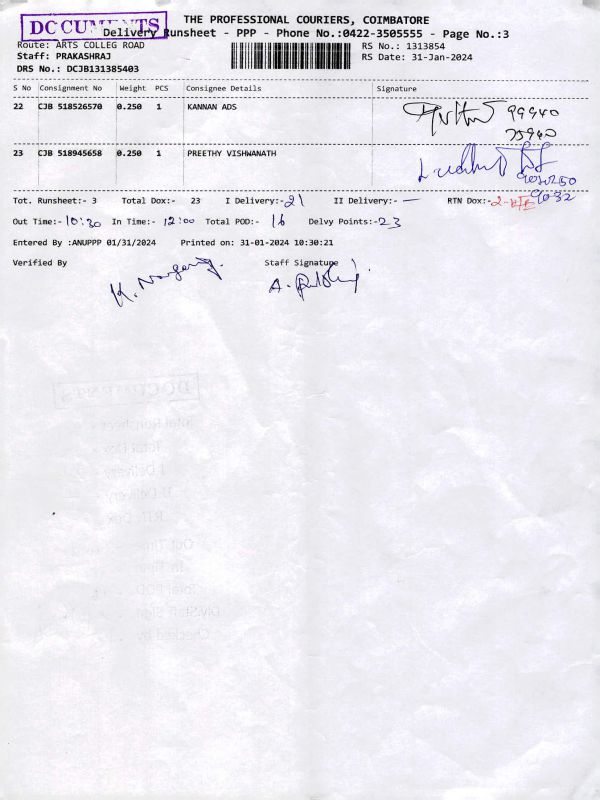 DOCUMENTS
THE PROFESSIONAL COURIERS, COIMBATORE
Delivery Runsheet - PPP - Phone No.:0422-3505555 - Page No.:3
Route: ARTS COLLEG ROAD RS No.: 1313854
Staff: PRAKASHRAJ RS Date: 31-Jan-2024
DRS No.: DCJB131385403
S No Consignment No Weight PCS Consignee Details Signature
22 CJB 518526570 0.250 1 KANNAN ADS 99940
75940
23 CJB 518945658 0.250 1 PREETHY VISHWANATH
Tot. Runsheet:- 3 Total Dox:- 23 I Delivery:- 21 II Delivery:- — RTN Dox:- 2-
Out Time:- 10:30 In Time:- 12:00 Total POD:- 16 Delvy Points:- 23
Entered By :ANUPPP 01/31/2024 Printed on: 31-01-2024 10:30:21
Verified By Staff Signature